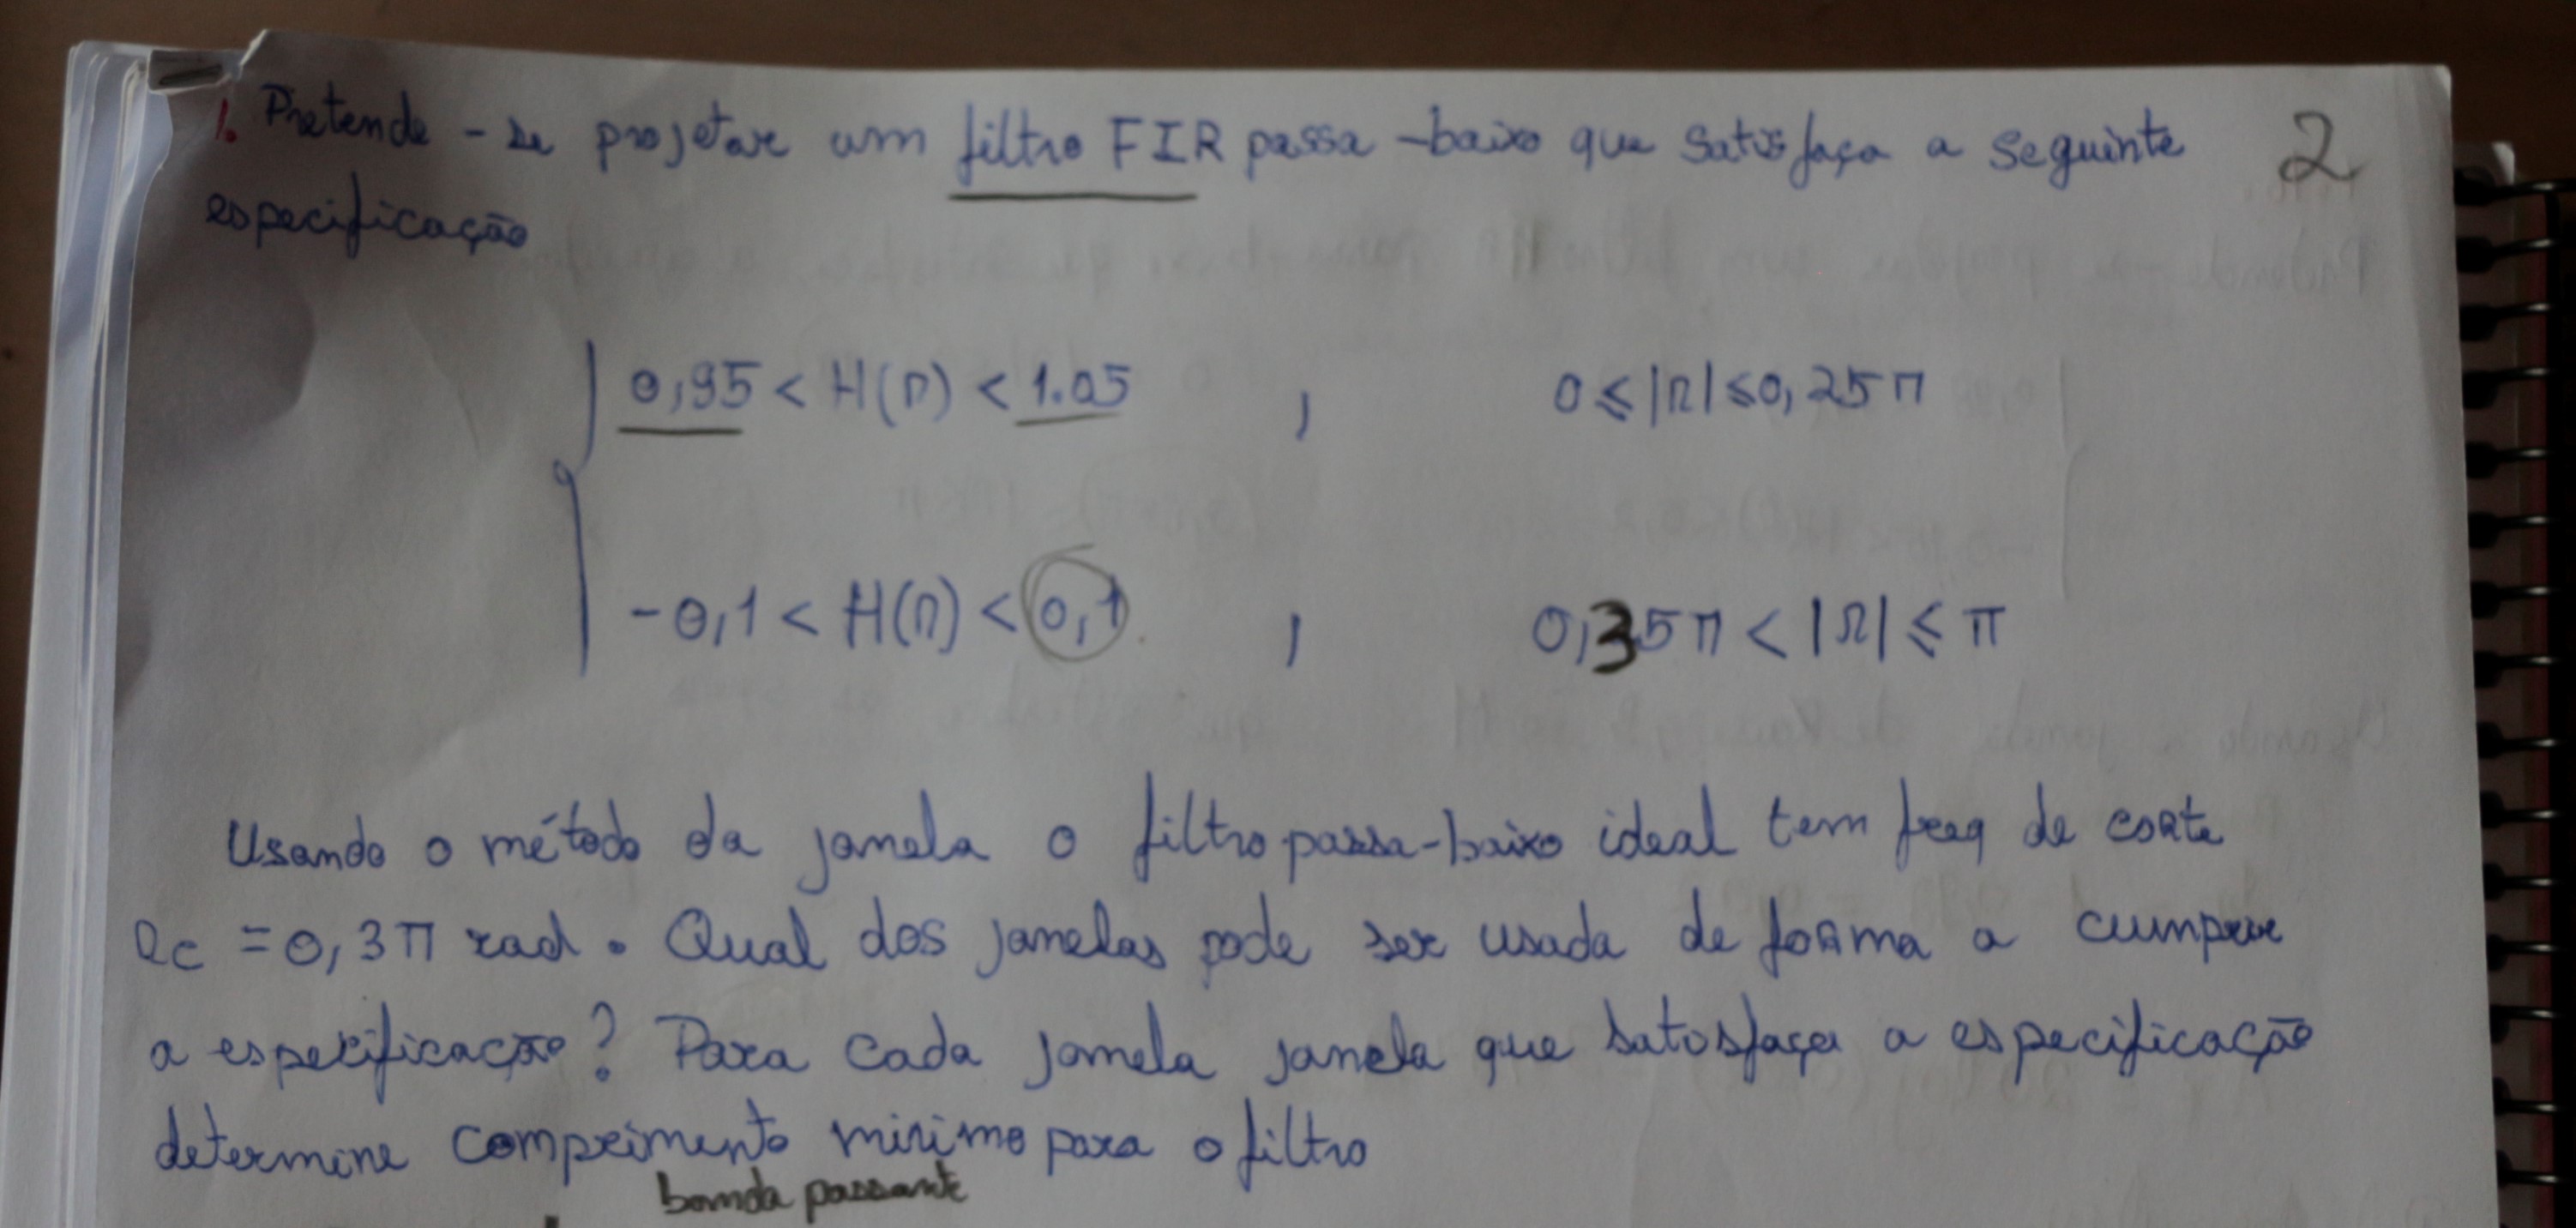 1. Pretende-se projetar um filtro FIR passa-baixo que satisfaça a seguinte 2
especificação
0,95 < H(Ω) < 1.05 , 0 ≤ |Ω| ≤ 0,25π
-0,1 < H(Ω) < 0,1 , 0,35π < |Ω| ≤ π
Usando o método da janela o filtro passa-baixo ideal tem freq de corte
Ωc = 0,3π rad. Qual das janelas pode ser usada de forma a cumprir
a especificação? Para cada janela janela que satisfaça a especificação
determine comprimento minimo para o filtro
banda passante